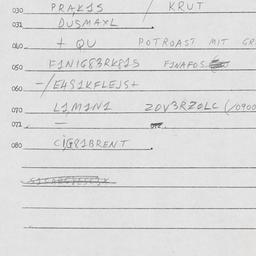 030 PRAK1S / KRUT
031 DUSMAXL
040 + QU POTROAST MIT GR
050 F1NIG83RK81S F1NAFOS
060 -/E4S1KFLEJS+
070 L1M1N1 ZOV3RZOLC (/0900
071 —
080 CIG81BRENT